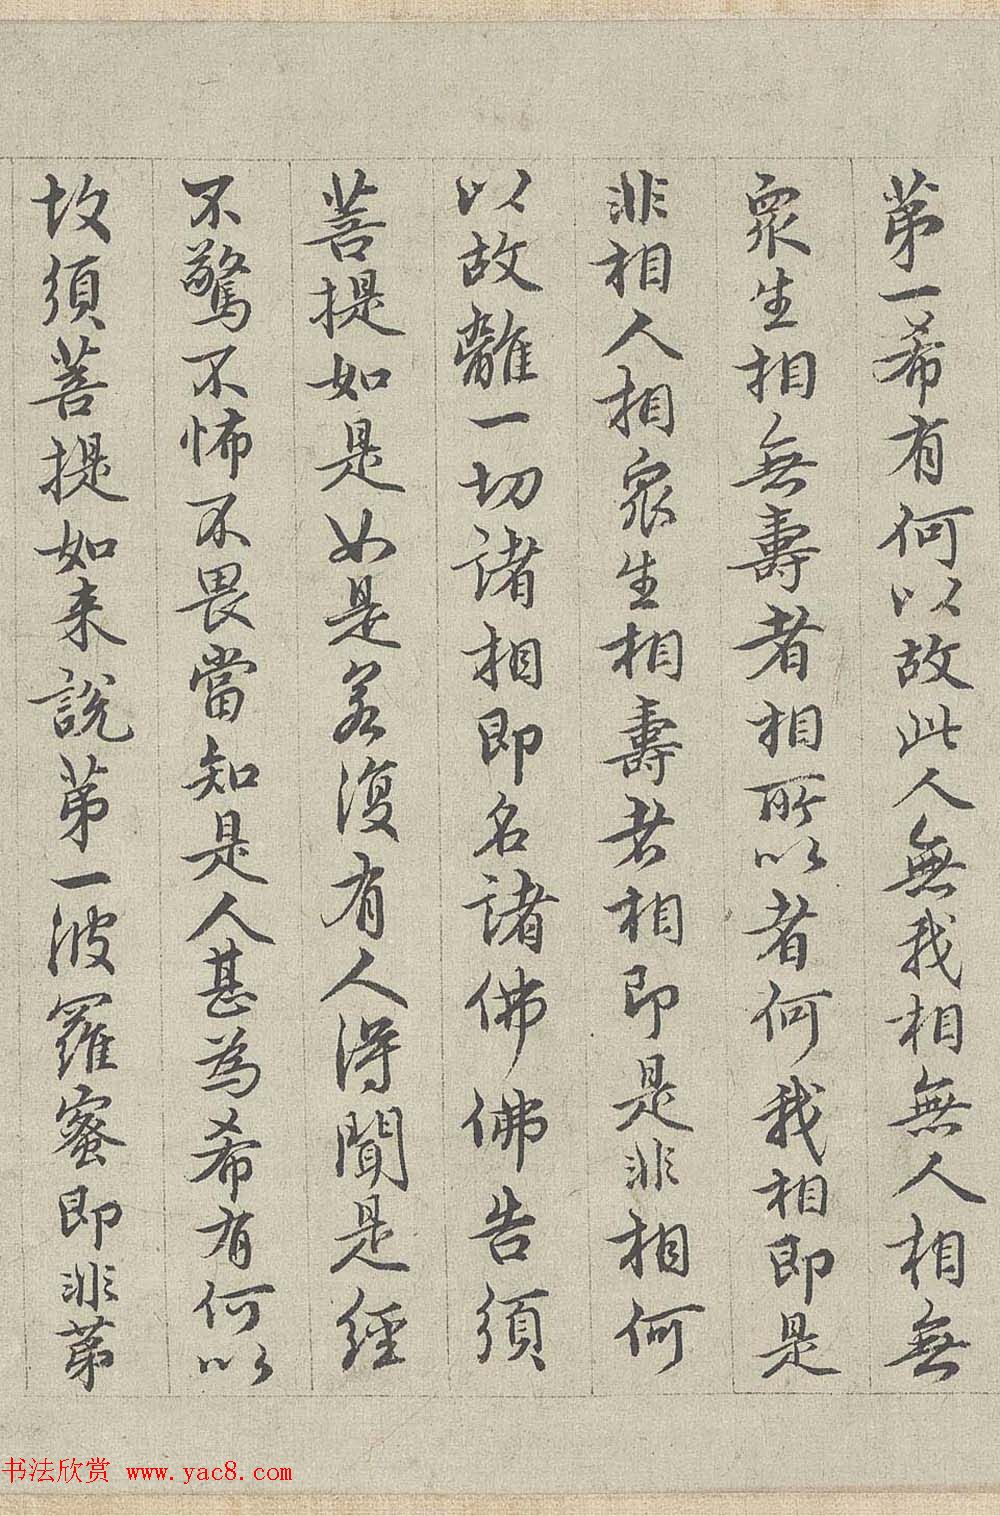 第一希有何以故此人無我相無人相無
眾生相無壽者相所以者何我相即是
非相人相眾生相壽者相即是非相何
以故離一切諸相即名諸佛佛告須
菩提如是如是若復有人得聞是經
不驚不怖不畏當知是人甚為希有何以
故須菩提如来說第一波羅蜜即非第
书法欣赏 www.yac8.com